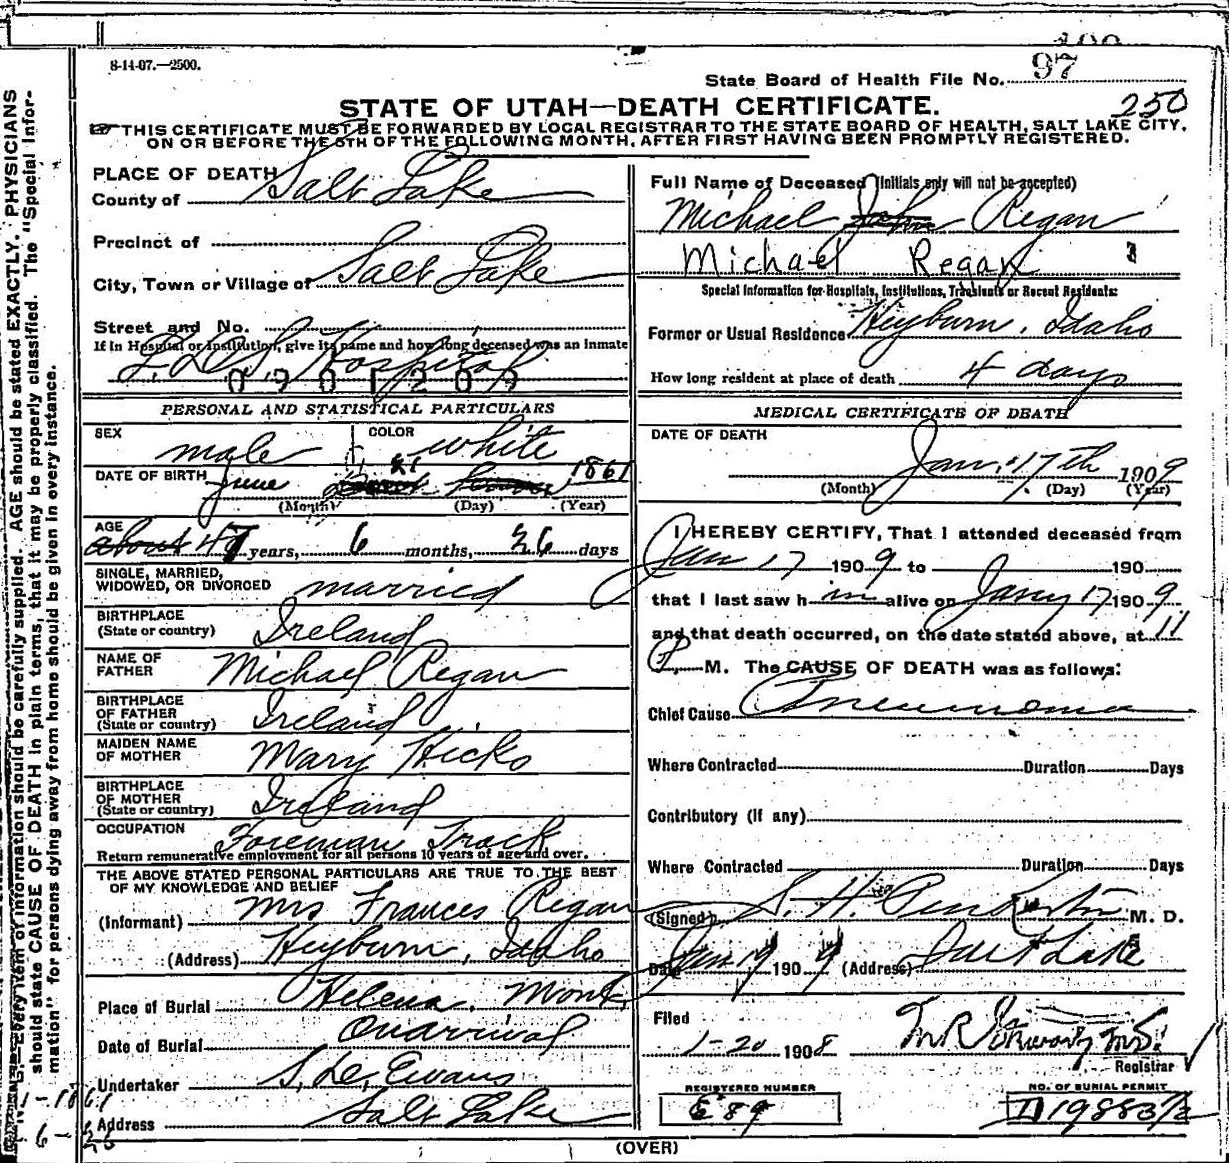 8-14-07.—2500.
State Board of Health File No. 97
STATE OF UTAH—DEATH CERTIFICATE.
250
THIS CERTIFICATE MUST BE FORWARDED BY LOCAL REGISTRAR TO THE STATE BOARD OF HEALTH, SALT LAKE CITY,
ON OR BEFORE THE 5TH OF THE FOLLOWING MONTH, AFTER FIRST HAVING BEEN PROMPTLY REGISTERED.
PLACE OF DEATH
County of Salt Lake
Precinct of
City, Town or Village of Salt Lake
Street and No.
If in Hospital or Institution, give its name and how long deceased was an inmate
L.D.S. Hospital
0901209
PERSONAL AND STATISTICAL PARTICULARS
SEX male COLOR white
DATE OF BIRTH June 21 1861
(Month) (Day) (Year)
AGE about 47 years, 6 months, 26 days
SINGLE, MARRIED,
WIDOWED, OR DIVORCED married
BIRTHPLACE
(State or country) Ireland
NAME OF
FATHER Michael Regan
BIRTHPLACE
OF FATHER
(State or country) Ireland
MAIDEN NAME
OF MOTHER Mary Hicks
BIRTHPLACE
OF MOTHER
(State or country) Ireland
OCCUPATION Foreman Track
Return remunerative employment for all persons 10 years of age and over.
THE ABOVE STATED PERSONAL PARTICULARS ARE TRUE TO THE BEST
OF MY KNOWLEDGE AND BELIEF
(Informant) Mrs Frances Regan
(Address) Heyburn, Idaho
Place of Burial Helena, Mont
Date of Burial On arrival
Undertaker S. D. Evans
Address Salt Lake
Full Name of Deceased (Initials only will not be accepted)
Michael John Regan
Michael Regan
Special Information for Hospitals, Institutions, Transients or Recent Residents:
Former or Usual Residence Heyburn, Idaho
How long resident at place of death 4 days
MEDICAL CERTIFICATE OF DEATH
DATE OF DEATH
Jan. 17th 1909
(Month) (Day) (Year)
I HEREBY CERTIFY, That I attended deceased from
Jan 17 1909 to 190
that I last saw him alive on Jany 17 1909
and that death occurred, on the date stated above, at 11
P. M. The CAUSE OF DEATH was as follows:
Chief Cause Pneumonia
Where Contracted Duration Days
Contributory (If any)
Where Contracted Duration Days
(Signed) S. H. Pinkerton M. D.
Date Jan 19 1909 (Address) Salt Lake
Filed
1-20 1908
Registrar
REGISTERED NUMBER
E 89
NO. OF BURIAL PERMIT
D 19883 1/2
(OVER)
N. B.—Every item of information should be carefully supplied. AGE should be stated EXACTLY. PHYSICIANS
should state CAUSE OF DEATH in plain terms, that it may be properly classified. The "Special Infor-
mation" for persons dying away from home should be given in every instance.
1-1861
6-26